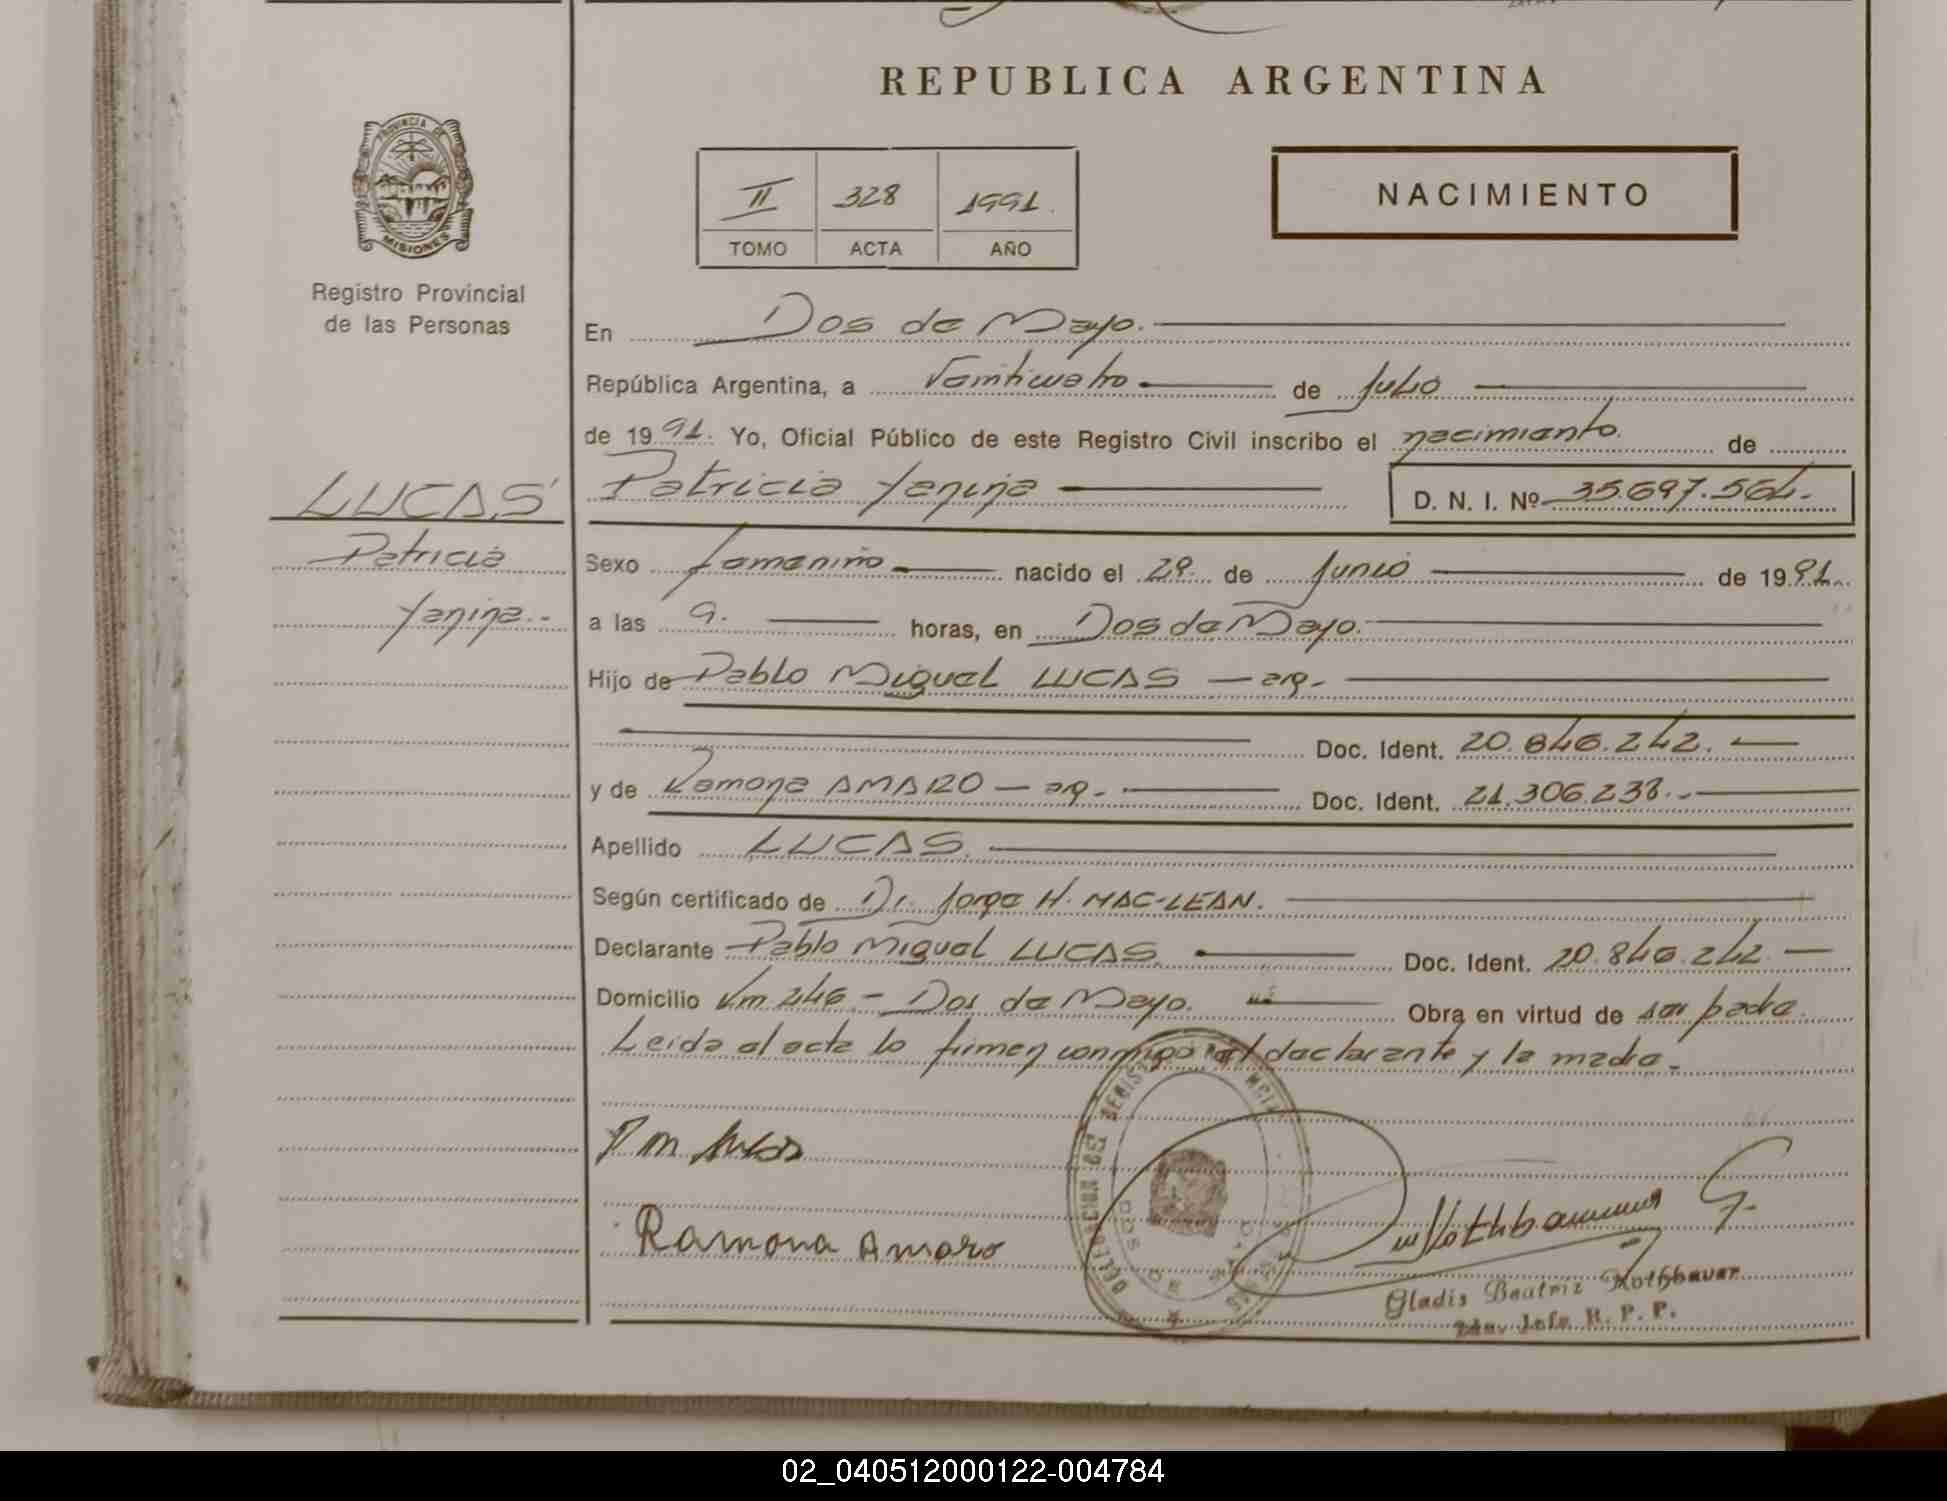 REPUBLICA ARGENTINA
PROVINCIA DE
MISIONES
Registro Provincial
de las Personas
II 328 1991.
TOMO ACTA AÑO
NACIMIENTO
En Dos de Mayo.
República Argentina, a Veinticuatro de Julio
de 1991. Yo, Oficial Público de este Registro Civil inscribo el nacimiento. de
LUCAS Patricia Yanina D. N. I. Nº 35.697.564.
Patricia Sexo femenino nacido el 29. de Junio de 1991.
Yanina.- a las 9. horas, en Dos de Mayo.
Hijo de Pablo Miguel LUCAS — arg.
Doc. Ident. 20.846.242.
y de Ramona AMARO — arg. Doc. Ident. 21.306.238.
Apellido LUCAS.
Según certificado de Dr. Jorge H. MAC-LEAN.
Declarante Pablo Miguel LUCAS Doc. Ident. 20.846.242.
Domicilio Km 246 - Dos de Mayo. Obra en virtud de ser padre.
Leida el acta lo firman conmigo el declarante y la madre.
P M Lucas
Ramona Amaro
Gladis Beatriz Rothbauer
Jefe R. P. P.
02_040512000122-004784